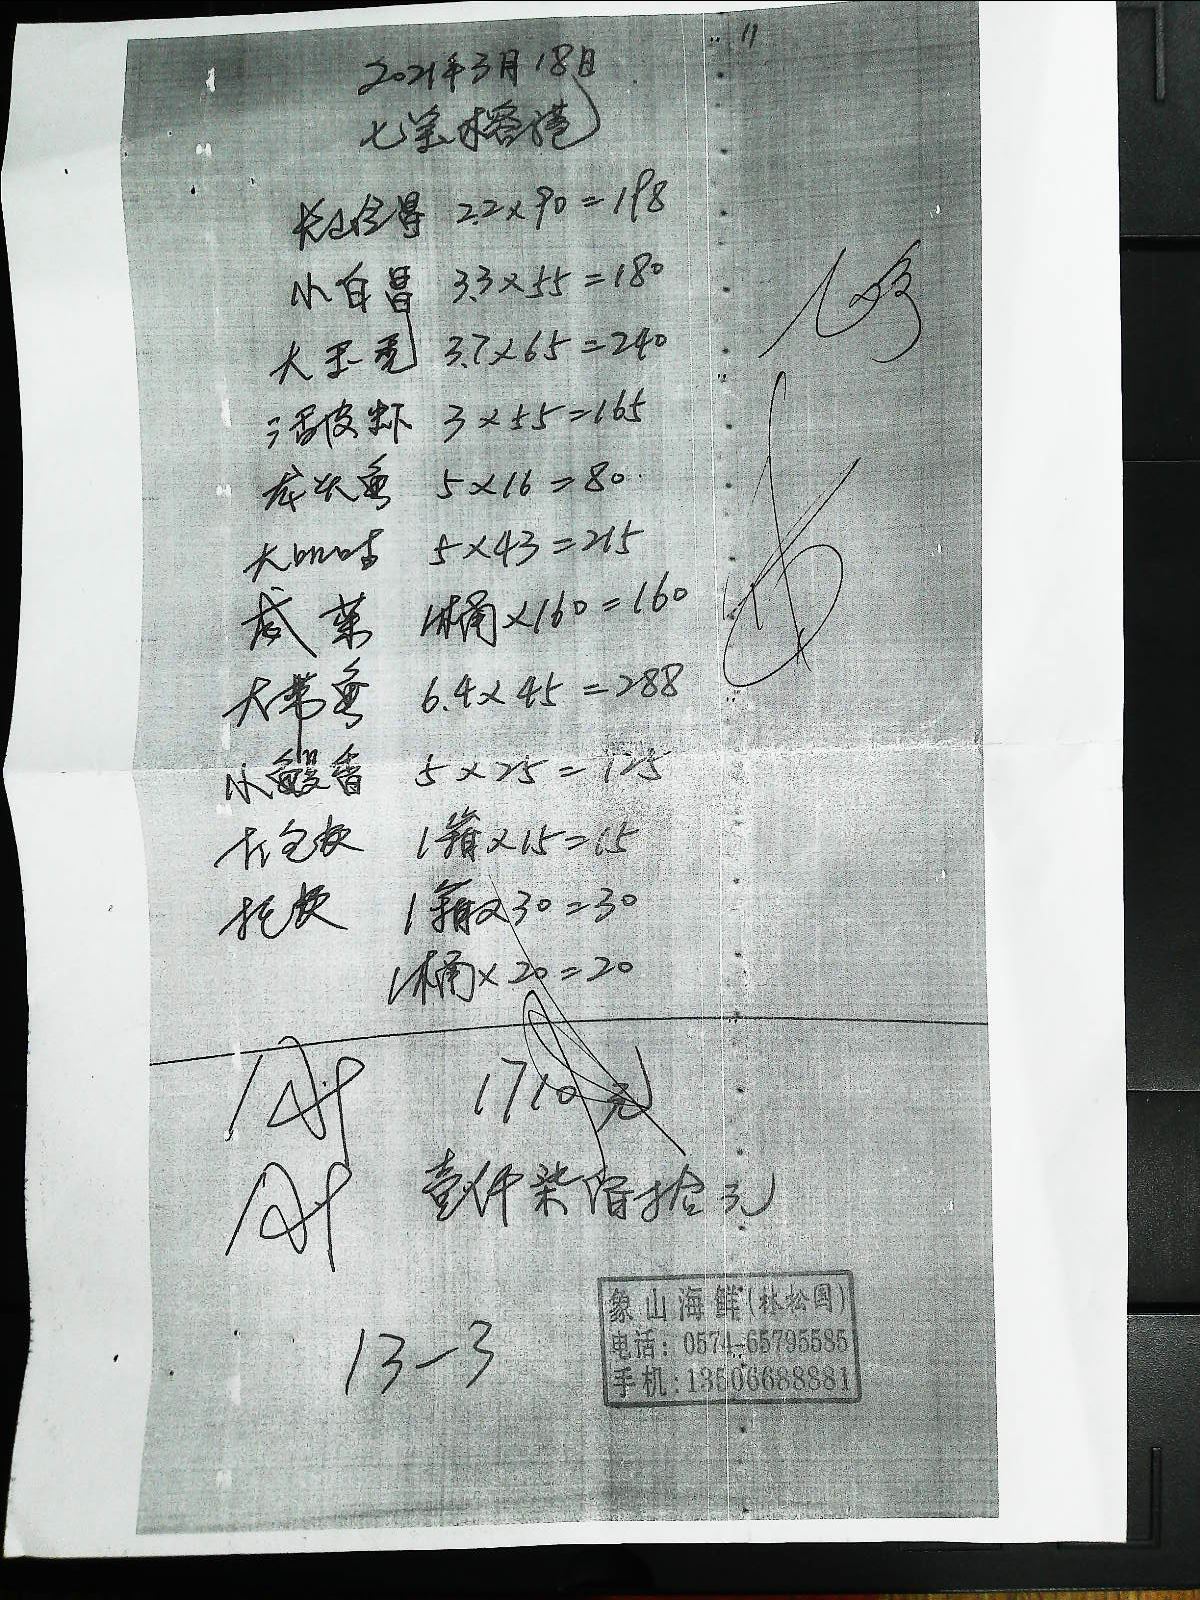 2021年3月18日
2.2×90=198
小白昌 3.3×55=180
大玉秃 3.7×65=240
活皮虾 3×55=165
龙头鱼 5×16=80
大叭咕 5×43=215
咸菜 1桶×160=160
大带鱼 6.4×45=288
小鳗香 5×25=125
打包快 1箱×15=15
托快 1箱×30=30
1桶×20=20
1710元
壹仟柒佰拾元
13-3
象山海鲜(林松国)
电话:0574-65795585
手机:13506688881